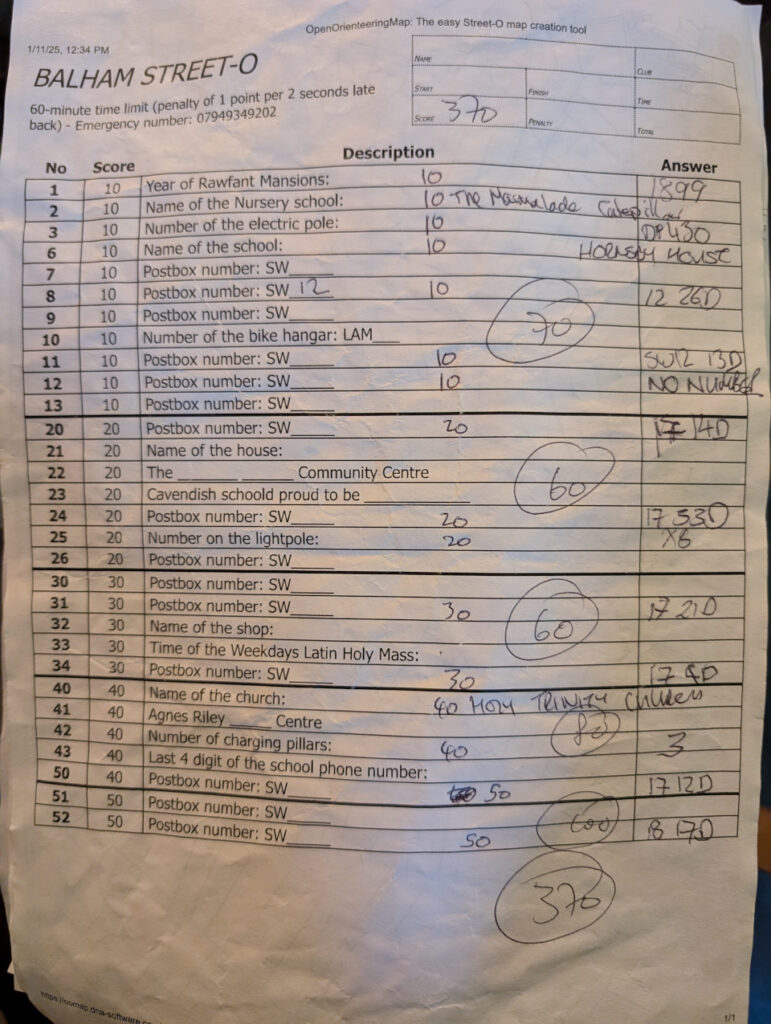 OpenOrienteeringMap: The easy Street-O map creation tool
1/11/25, 12:34 PM
BALHAM STREET-O
60-minute time limit (penalty of 1 point per 2 seconds late
back) - Emergency number: 07949349202
NAME CLUB
START FINISH TIME
SCORE 370 PENALTY TOTAL
No Score Description Answer
1 10 Year of Rawfant Mansions: 10 1899
2 10 Name of the Nursery school: 10 - The Marmalade Caterpillar
3 10 Number of the electric pole: 10 DP430
6 10 Name of the school: 10 HORNSBY HOUSE
7 10 Postbox number: SW____
8 10 Postbox number: SW 12 10 12 26D
9 10 Postbox number: SW____
70
10 10 Number of the bike hangar: LAM___
11 10 Postbox number: SW____ 10 SW12 13D
12 10 Postbox number: SW____ 10 NO NUMBER
13 10 Postbox number: SW____
20 20 Postbox number: SW____ 20 17 14D
21 20 Name of the house:
22 20 The ______ ______ Community Centre
23 20 Cavendish schoold proud to be __________
60
24 20 Postbox number: SW____ 20 17 53D
25 20 Number on the lightpole: 20 X6
26 20 Postbox number: SW____
30 30 Postbox number: SW____
31 30 Postbox number: SW____ 30 17 21D
32 30 Name of the shop:
60
33 30 Time of the Weekdays Latin Holy Mass:
34 30 Postbox number: SW____ 30 17 4D
40 40 Name of the church: 40 HOLY TRINITY Church
41 40 Agnes Riley ____ Centre
80
42 40 Number of charging pillars: 40 3
43 40 Last 4 digit of the school phone number:
50 40 Postbox number: SW____ 50 17 12D
51 50 Postbox number: SW____
100
52 50 Postbox number: SW____ 50 18 17D
370
1/1